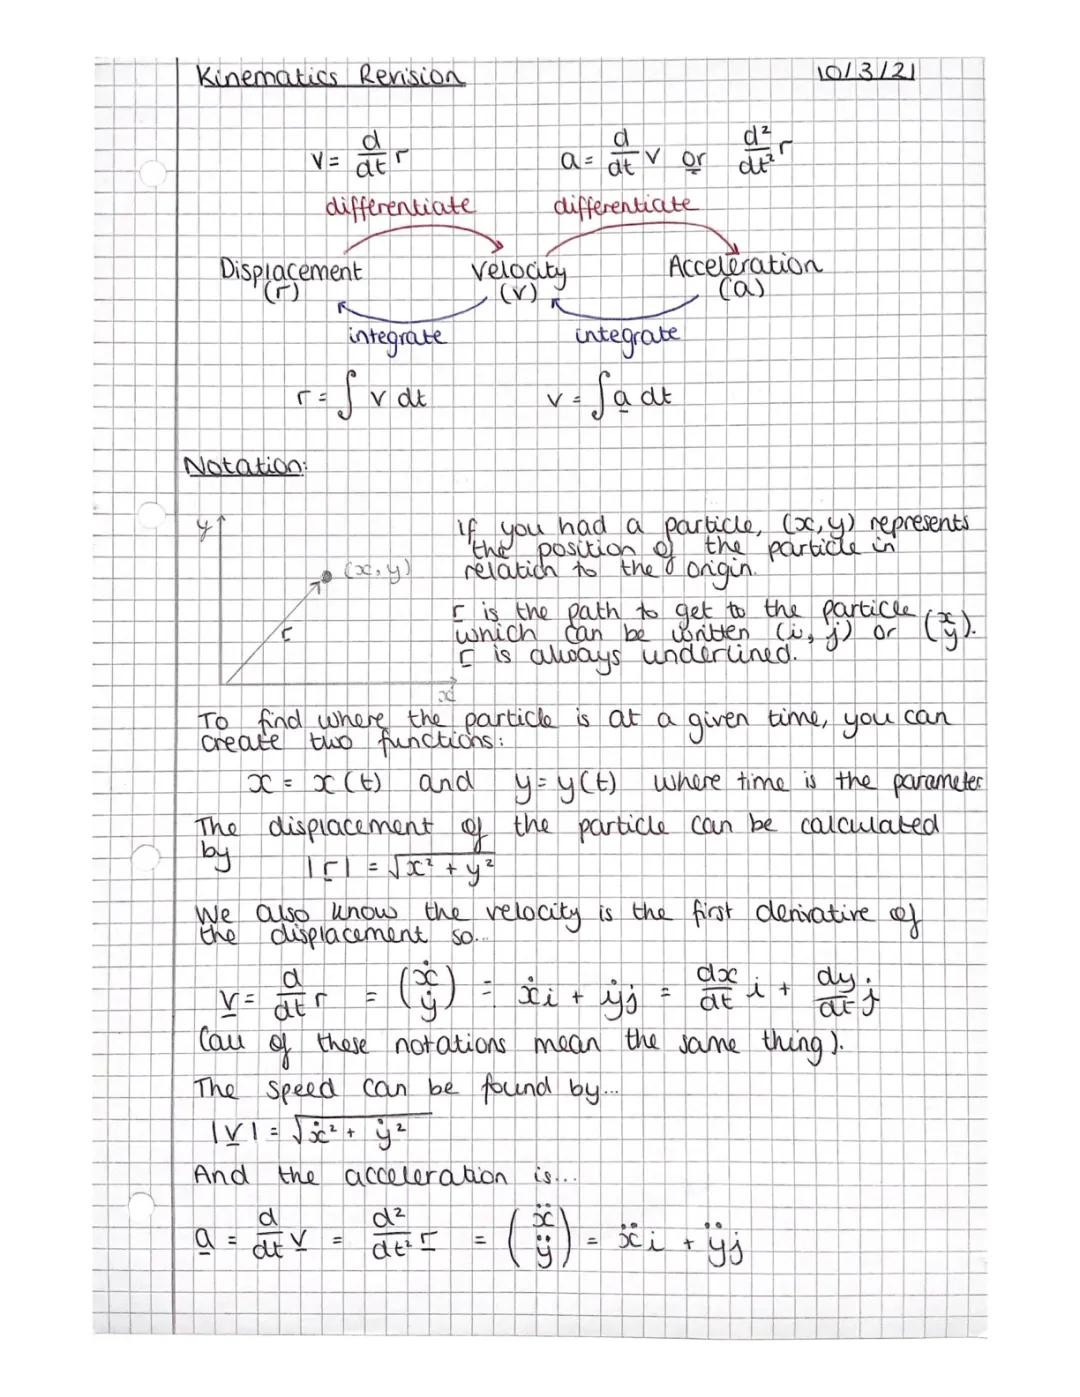 Kinematics Revision 10/3/21
v = d/dt r a = d/dt v or d²/dt² r
differentiate differentiate
Displacement (r) Velocity (v) Acceleration (a)
integrate integrate
r = ∫ v dt v = ∫ a dt
Notation:
y
(x, y)
r
x
If you had a particle, (x, y) represents
the position of the particle in
relation to the origin.
r is the path to get to the particle
which can be written (i, j) or (x y).
r is always underlined.
To find where the particle is at a given time, you can
create two functions:
x = x(t) and y = y(t) where time is the parameter
The displacement of the particle can be calculated
by |r| = √x² + y²
We also know the velocity is the first derivative of
the displacement so...
v = d/dt r = (ẋ ẏ) = ẋi + ẏj = dx/dt i + dy/dt j
(all of these notations mean the same thing).
The speed can be found by...
|v| = √ẋ² + ẏ²
And the acceleration is...
a = d/dt v = d²/dt² r = (ẍ ÿ) = ẍi + ÿj